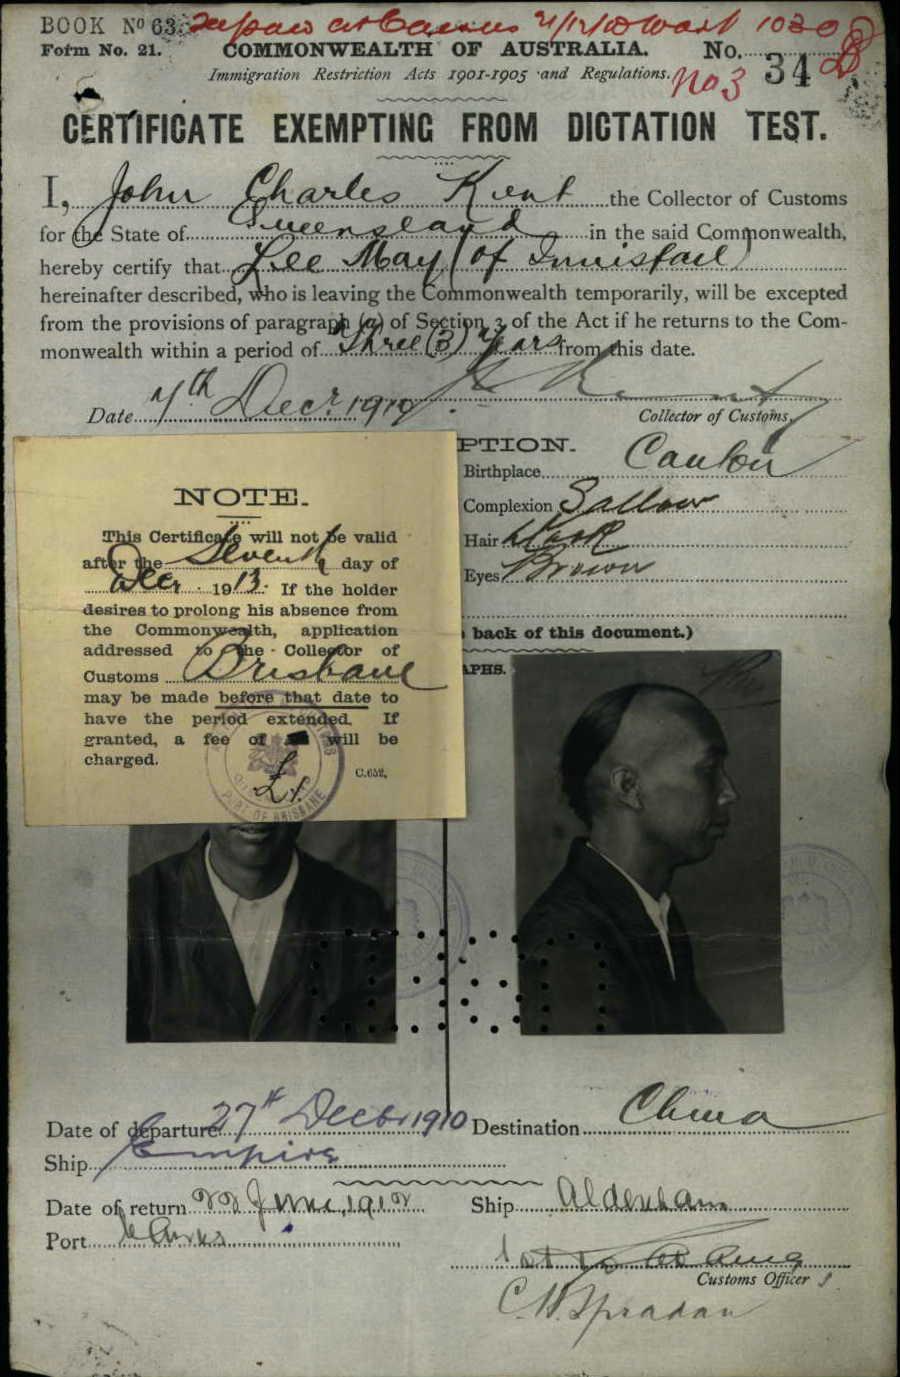 BOOK No 63.
Cairns 1030
Form No. 21. COMMONWEALTH OF AUSTRALIA. No. 34
Immigration Restriction Acts 1901-1905 and Regulations. No 3
CERTIFICATE EXEMPTING FROM DICTATION TEST.
I, John Charles Kent the Collector of Customs
for the State of Queensland in the said Commonwealth,
hereby certify that Lee May (of Innisfail)
hereinafter described, who is leaving the Commonwealth temporarily, will be excepted
from the provisions of paragraph (a) of Section 3 of the Act if he returns to the Com-
monwealth within a period of Three (3) Years from this date.
Date 7th Decr. 1910
Collector of Customs.
PTION.
Birthplace Canton
Complexion Sallow
Hair black
Eyes Brown
back of this document.)
APHS.
NOTE.
This Certificate will not be valid
after the Seventh day of
Decr 1913. If the holder
desires to prolong his absence from
the Commonwealth, application
addressed to the Collector of
Customs Brisbane
may be made before that date to
have the period extended. If
granted, a fee of will be
charged.
£1.
C.652.
PORT OF BRISBANE
Date of departure 27th Decbr 1910 Destination China
Ship Empire
Date of return 22 June, 1912 Ship Aldenham
Port Cairns
Customs Officer